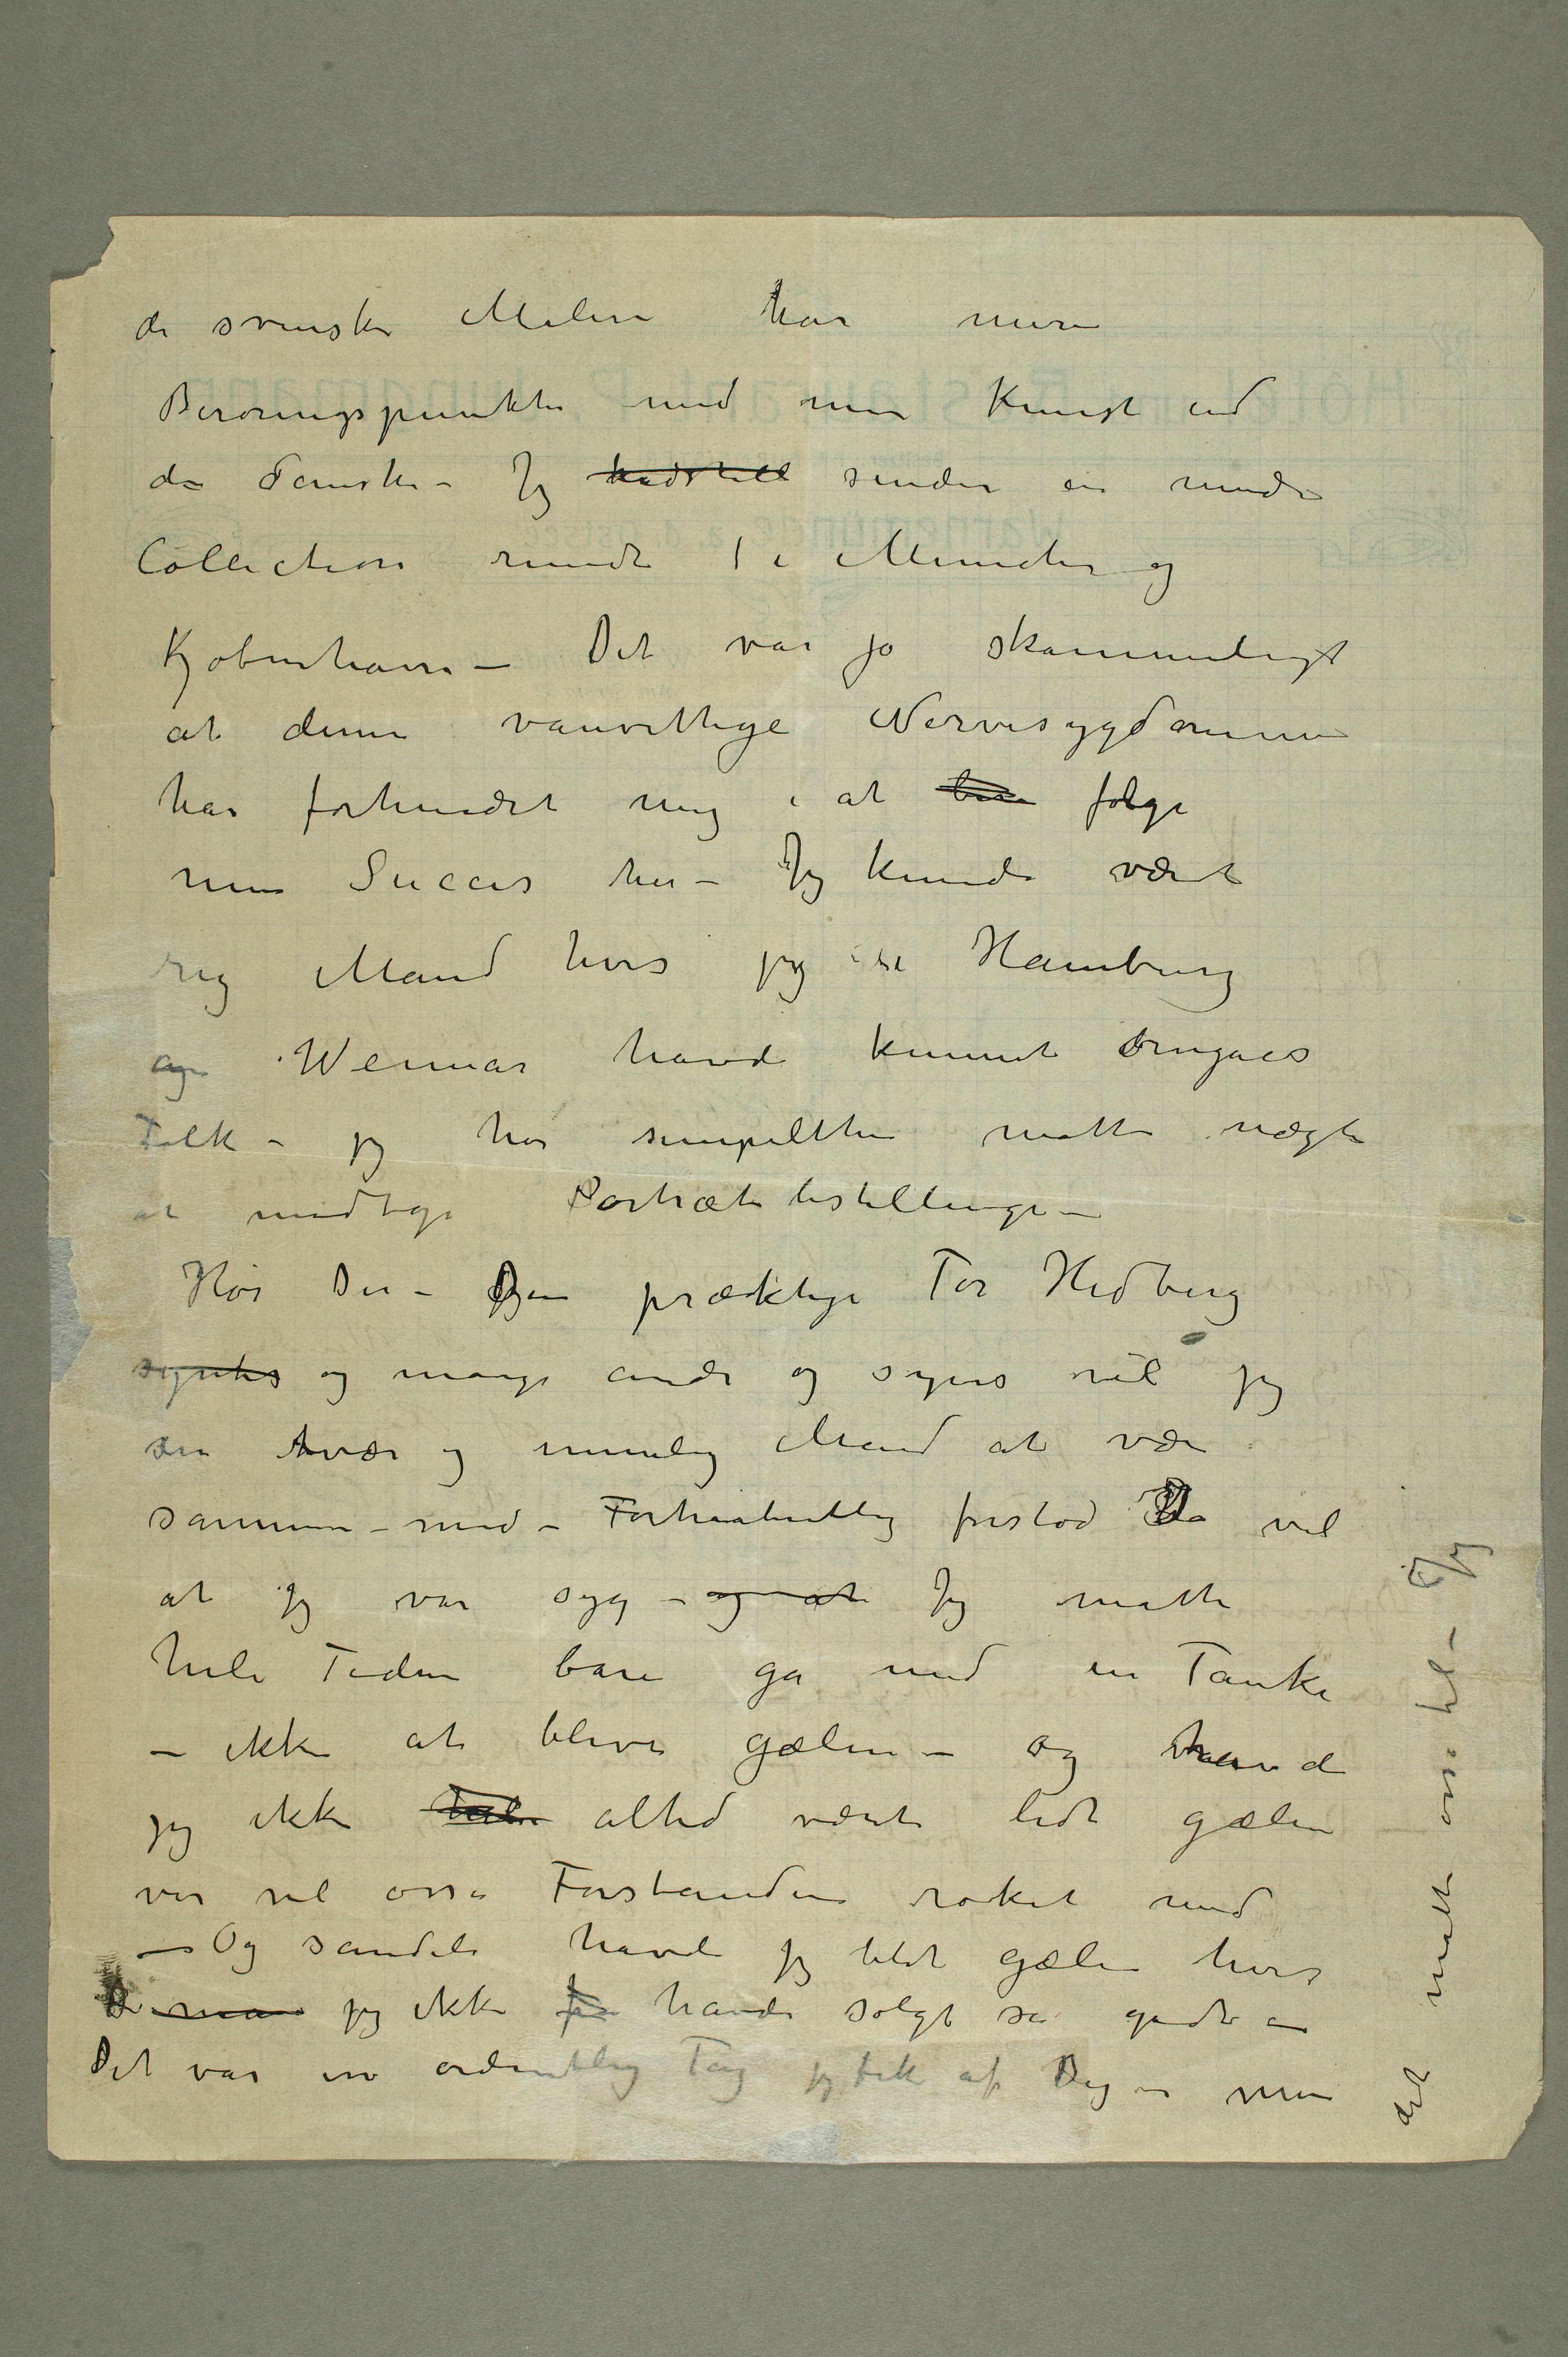 de svenske Malere har mere
Berøringspunkter med min Kunst end
de danske – Jeg udstill sender en mindre
Collection rundt i Munchen og
Kjøbenhavn – Det var jo skammeligt
at denne vanvittige Nervesygdommen
har forhindret mig i at følge
min Succes her – Jeg kunde været
rig Mand hvis jeg i Hamburg
og Weimar havde kunnet omgaaes
Folk – jeg har simpelthen måtte nægte
at modtage Portrætbestillinger –
Hør Du – Den præktige Tor Hedberg
syntes og mange andre og synes vel jeg
en tvær og umulig Mand at være
sammen med – Forhaabentlig forstod Du vel
at jeg var syg – og at Jeg måtte
hele Tiden bare gå med en Tanke
– ikke at blive gælen – og havde
jeg ikke altid været lidt gælen
var vel osså Forstanden røket med
– Og sandeli havde jeg blet gælen hvis
jeg ikke havde solgt så godt –
Det var en ordentlig Tag jeg fik af Dig – men
det måtte osså til –